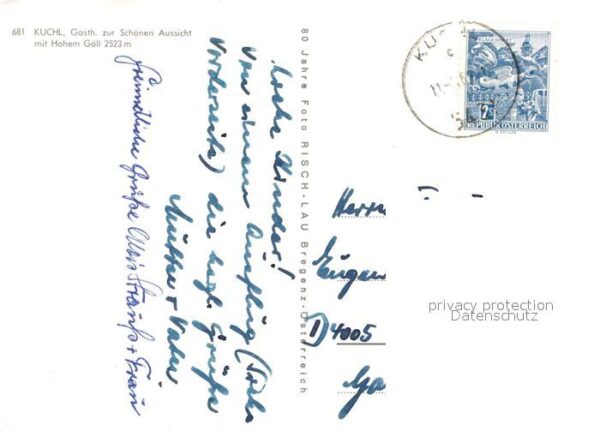 681 KUCHL, Gasth. zur Schönen Aussicht
mit Hohem Göll 2523 m
80 Jahre Foto RISCH-LAU Bregenz-Österreich
Liebe Kinder!
Von einem Ausflug (siehe
Vorderseite) die herzl. Grüße
Mutter + Vater
freundliche Grüße Alois Strauß + Frau
KUCHL
2
REPUBLIK ÖSTERREICH
Herrn
Eugen
D 4005
privacy protection
Datenschutz